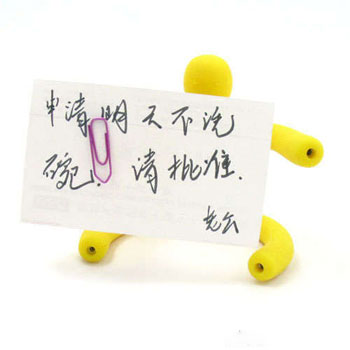 申请明天不洗
碗! 请批准.
老公